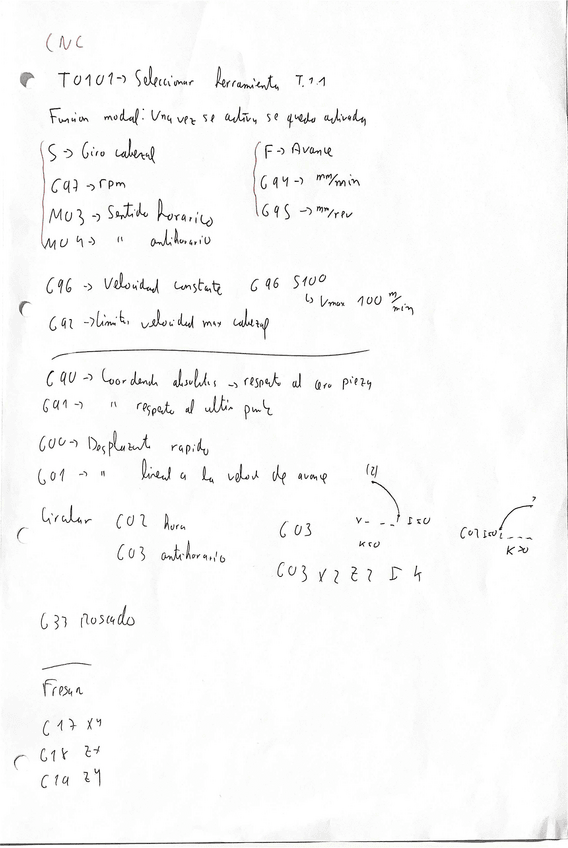 CNC
T0101 -> Seleccionar herramienta T.1.1
Funcion modal: Una vez se activa se queda activada
S -> Giro cabezal
G97 -> rpm
M03 -> Sentido horario
M04 -> " antihorario
F -> Avance
G94 -> mm/min
G95 -> mm/rev
G96 -> Velocidad constante G96 S100
↳ Vmax 100 m/min
G92 -> limitar velocidad max cabezal
G90 -> Coordenads absolutas -> respecto al cero pieza
G91 -> " respecto al ultim punto
G00 -> Desplazmt rapido
G01 -> " lineal a la veloc de avance
Circular G02 hora
G03 antihorario
G03
(2)
I<0
K<0
G02 I>0
?
K>0
G03 X? Z? I K
G33 Roscado
Fresan
G17 XY
G18 ZX
G19 ZY